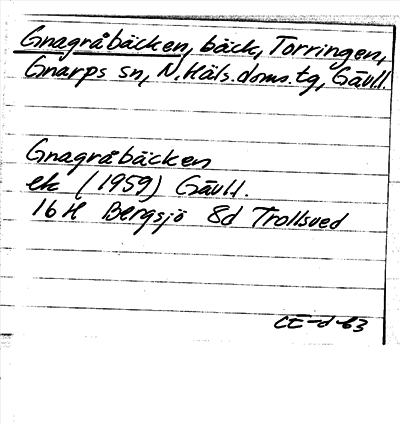 Gnagråbäcken, bäck, Torringen,
Gnarps sn, N. Häls. doms. tg, Gävl.l.
Gnagråbäcken
ek (1959) Gävl.l.
16H Bergsjö 8d Trollsved
CE-d-63